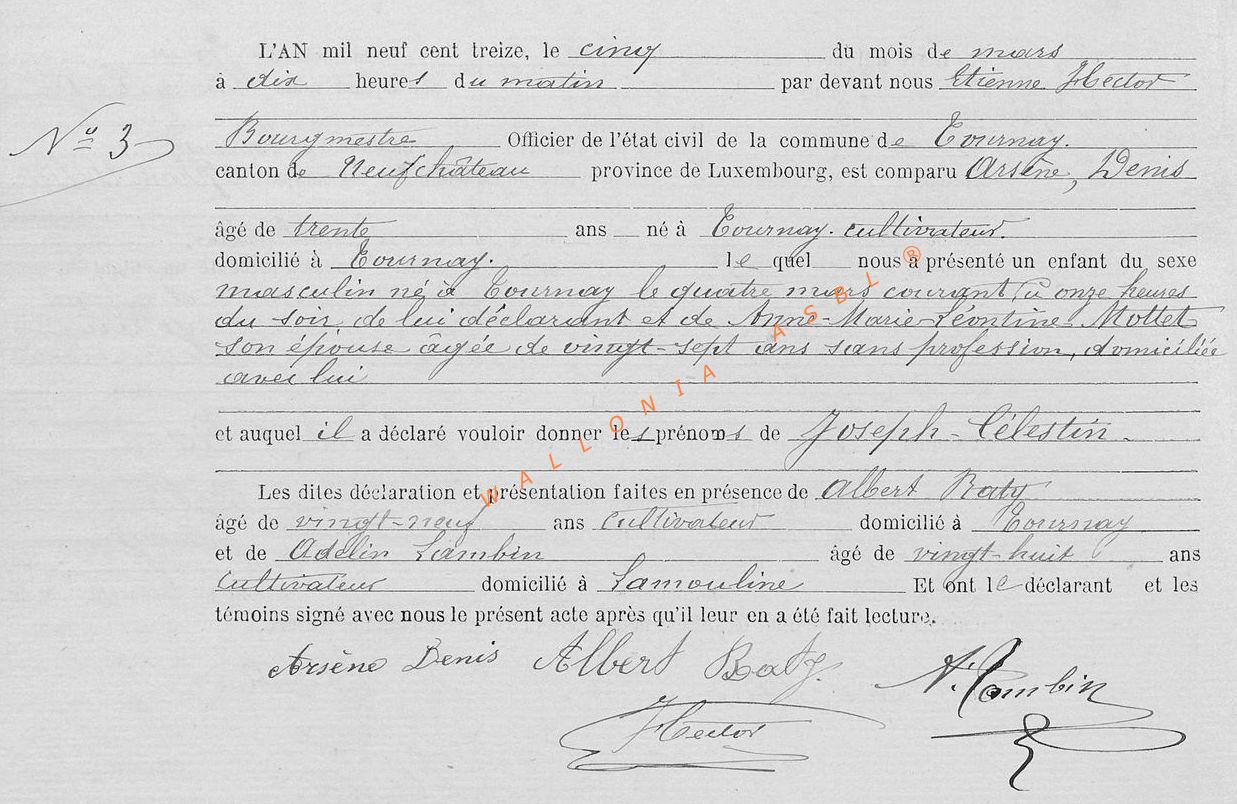 L'AN mil neuf cent treize, le cinq du mois de mars
à dix heures du matin par devant nous Etienne Hector
Nº 3
Bourgmestre Officier de l'état civil de la commune de Tournay.
canton de Neufchâteau province de Luxembourg, est comparu Arsène, Denis
âgé de trente ans né à Tournay. cultivateur.
domicilié à Tournay. le quel nous a présenté un enfant du sexe
masculin né à Tournay le quatre mars courant, à onze heures
du soir, de lui déclarant et de Anne-Marie-Léontine Mottet
son épouse agée de vingt-sept ans sans profession, domiciliée
avec lui
et auquel il a déclaré vouloir donner les prénoms de Joseph-Célestin.
Les dites déclaration et présentation faites en présence de Albert Baty
âgé de vingt-neuf ans cultivateur domicilié à Tournay
et de Adelin Lambin âgé de vingt-huit ans
cultivateur domicilié à Lamouline Et ont le déclarant et les
témoins signé avec nous le présent acte après qu'il leur en a été fait lecture.
Arsène Denis Albert Baty. A. Lambin
Hector
WALLONIA ASBL ®